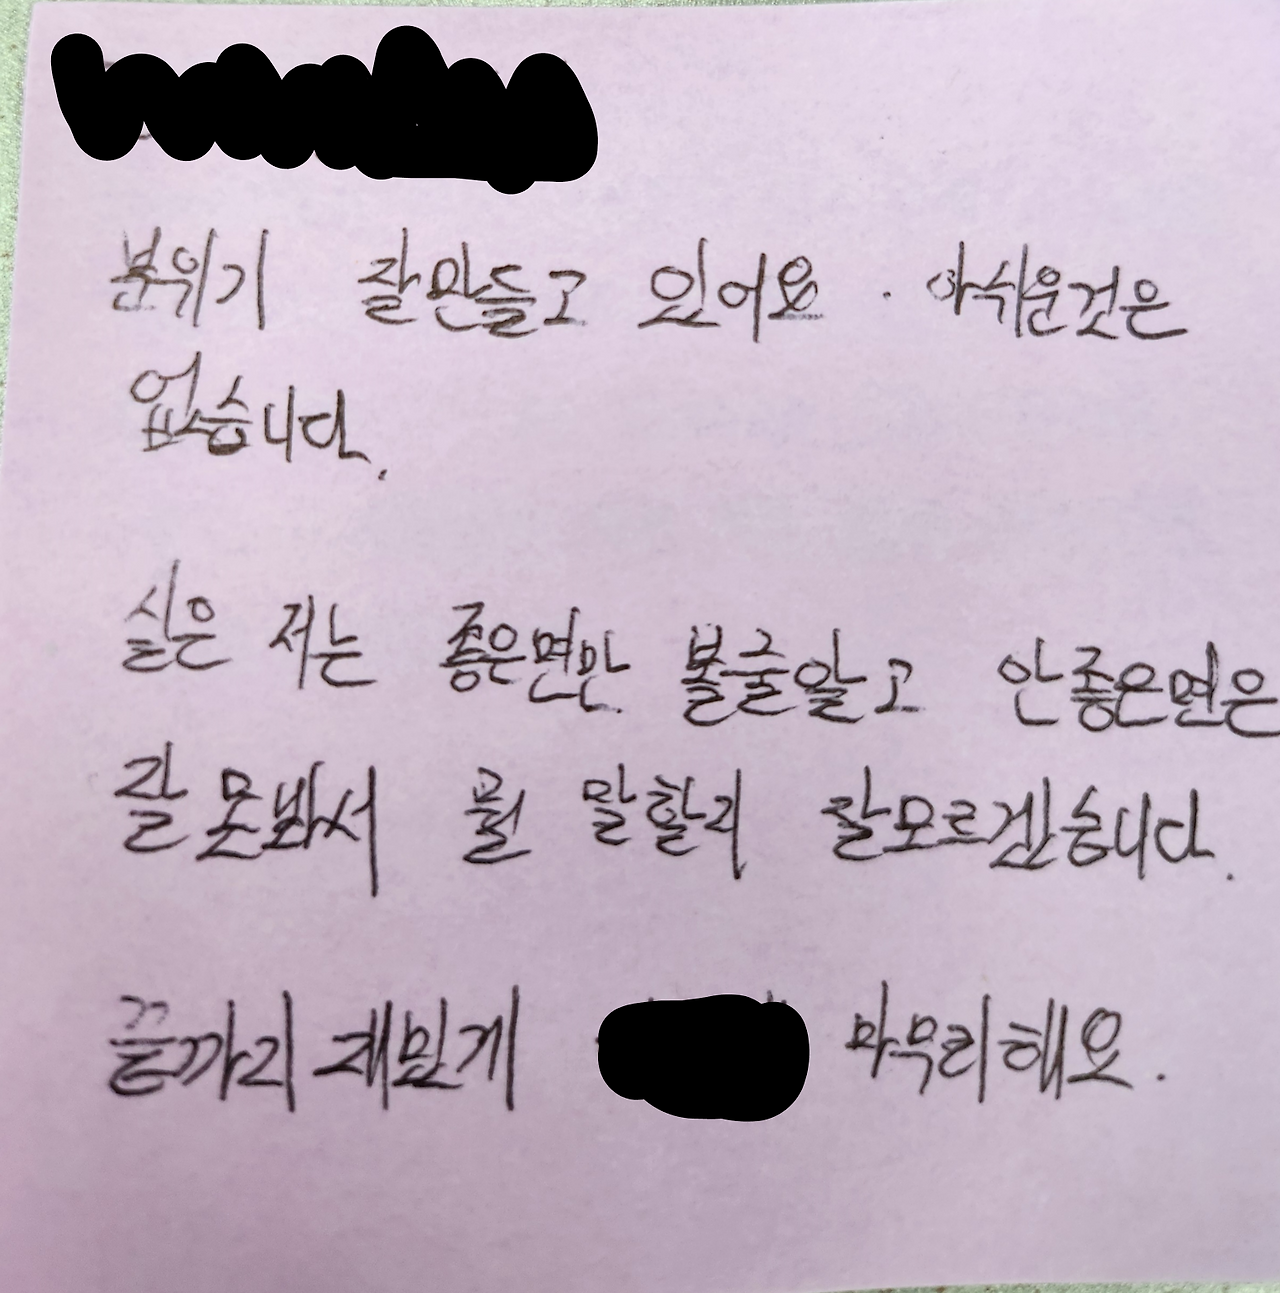 분위기 잘만들고 있어요. 아쉬운것은
없습니다.
실은 저는 좋은면만 볼줄알고 안좋은면은
잘 못봐서 뭘 말할지 잘모르겠습니다.
끝까지 재밌게 마무리해요.